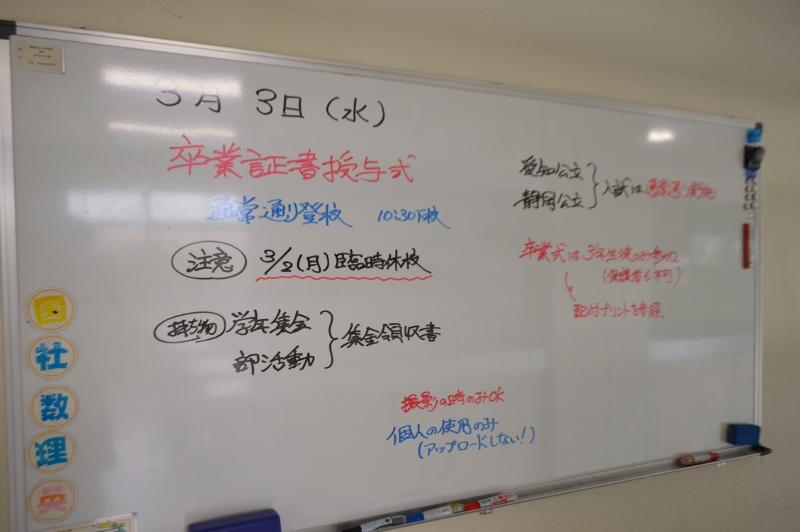 3月 3日(水)
卒業証書授与式
通常通り登校 10:30下校
注意 3/2(月)臨時休校
持ち物 学年集金
部活動
集金領収書
愛知公立
静岡公立
入試は通常通り実施
卒業式は3年生徒のみ参加
(保護者も不可)
配付プリントを参照
撮影の時のみOK
個人の使用のみ
(アップロードしない!)
国
社
数
理
英